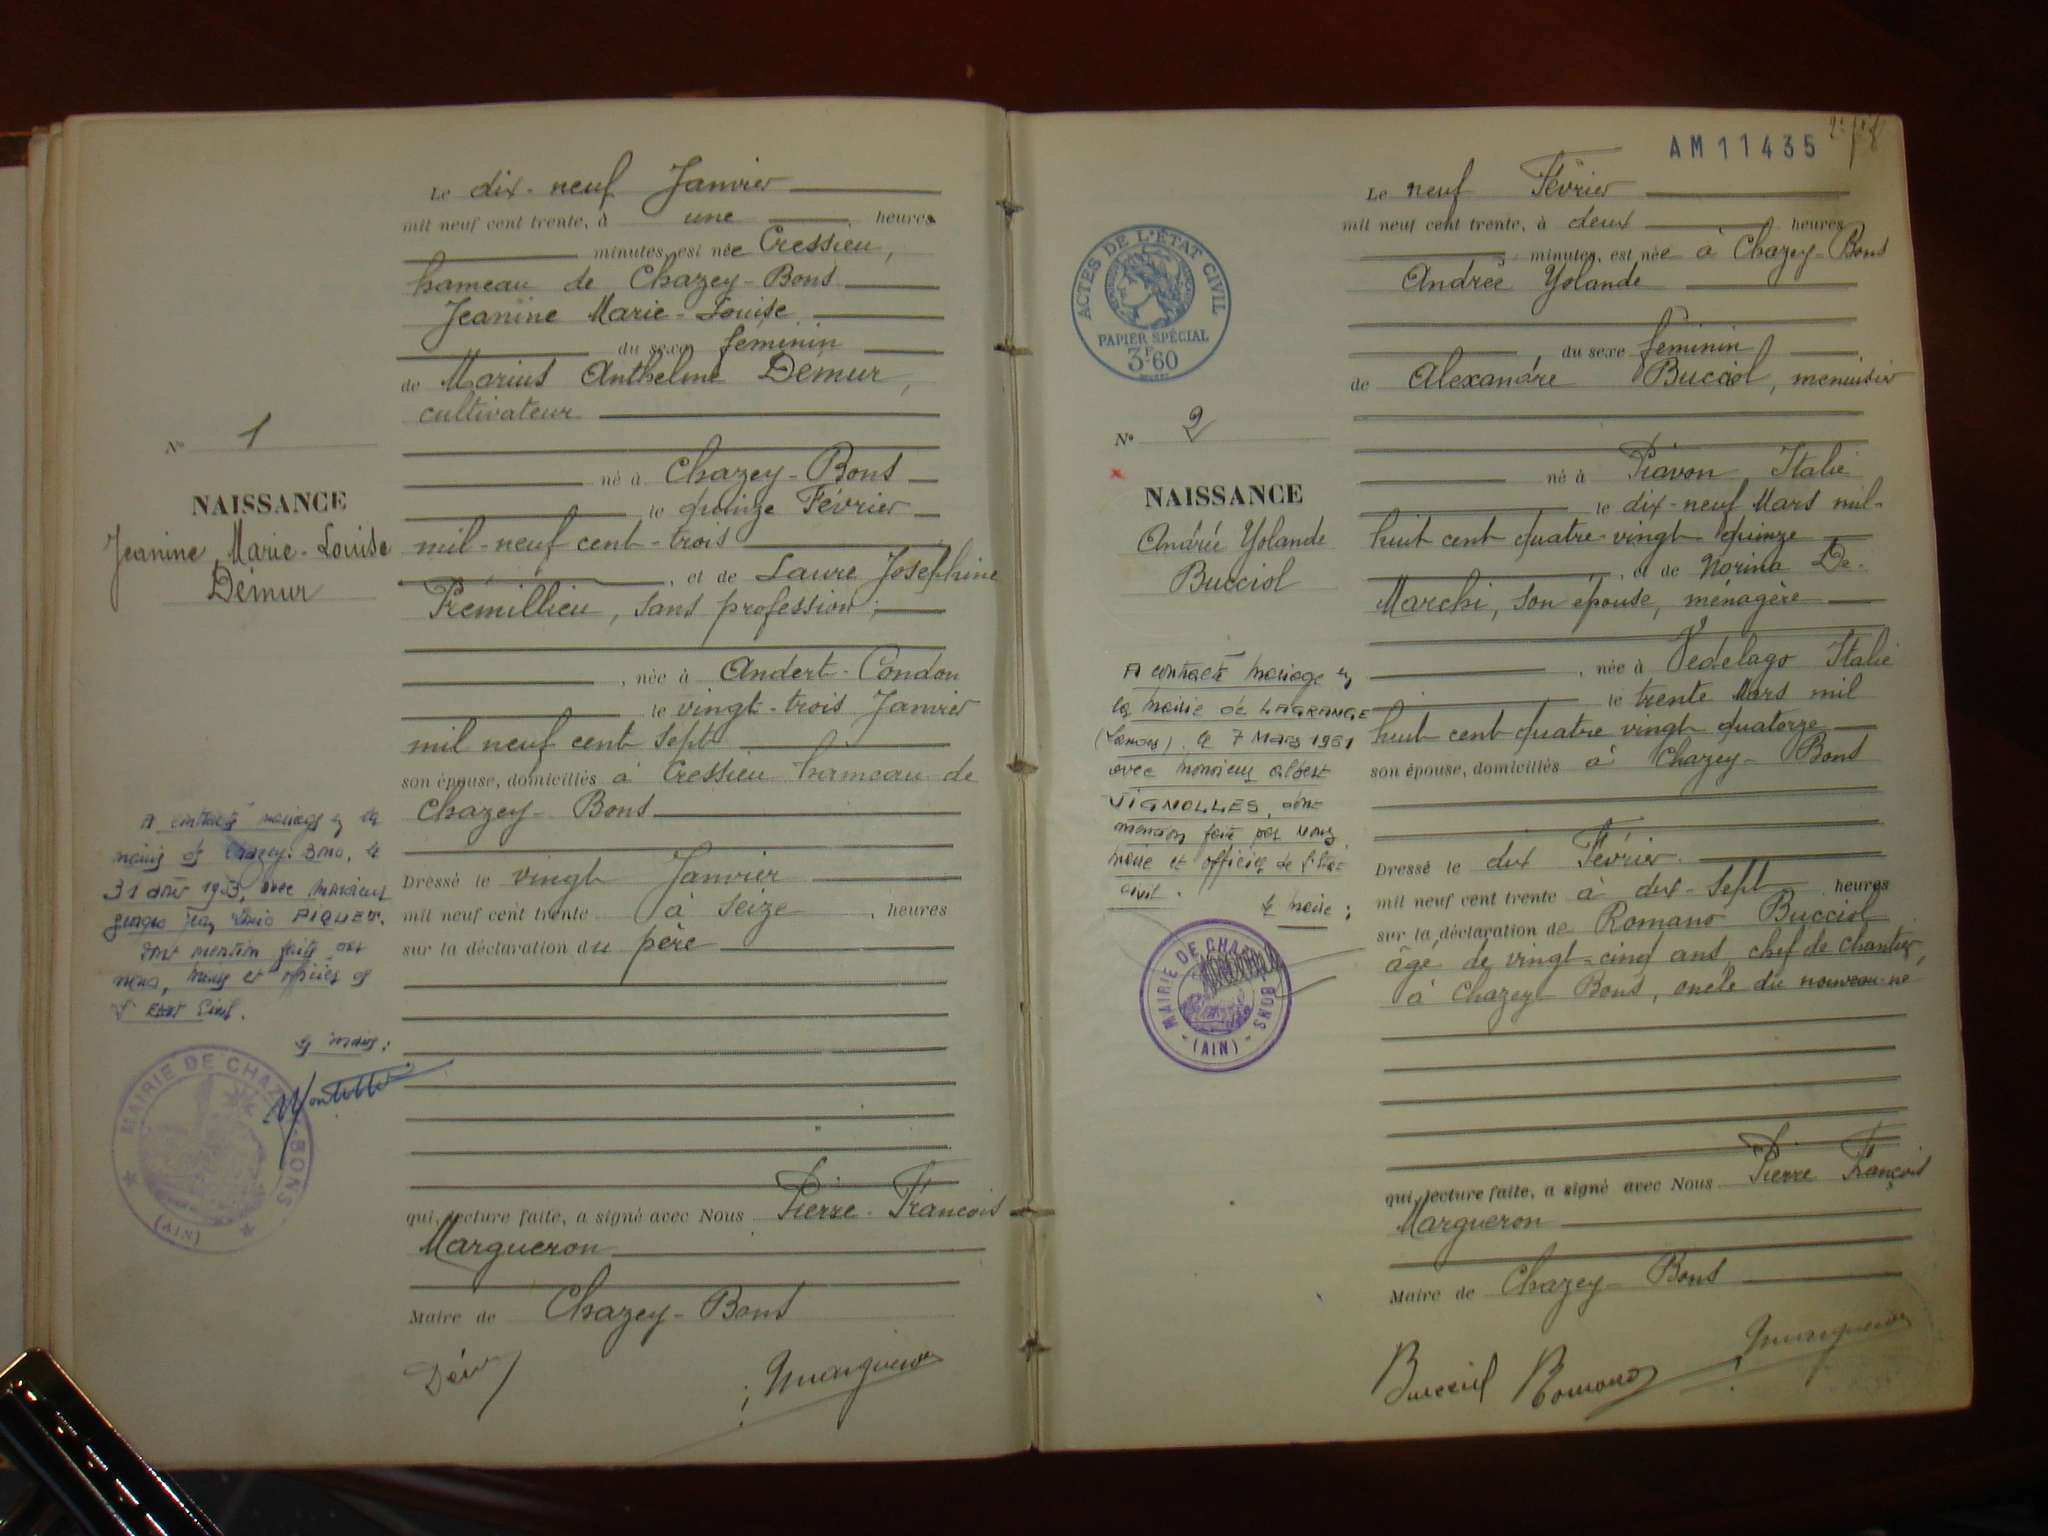 Le dix-neuf Janvier
mil neuf cent trente, à une heures
minutes est née Cressieu,
hameau de Chazey-Bons
Jeanine Marie-Louise
du sexe féminin
de Marius Anthelme Demur,
cultivateur
N° 1
né à Chazey-Bons
NAISSANCE
le quinze Février
Jeanine Marie-Louise
mil-neuf cent-trois
Démur
, et de Laure Josephine
Prémillieu, sans profession,
, née à Andert-Condon
le vingt-trois Janvier
mil neuf cent sept
son épouse, domiciliés à Cressieu hameau de
Chazey-Bons
A contracté mariage en la
mairie de Chazey-Bons, le
31 1953, avec monsieur
georges jean PIQUET.
dont mention faite par
nous, maire et officier de
l'état Civil.
le maire:
MAIRIE DE CHAZEY-BONS
(AIN)
Dressé le vingt Janvier
mil neuf cent trente à seize, heures
sur la déclaration du père
qui, lecture faite, a signé avec Nous Pierre-François
Margueron
Maire de Chazey-Bons
Margueron
AM11435
Le neuf Février
mil neuf cent trente, à deux heures
minutes, est née à Chazey-Bons
Andrée Yolande
du sexe féminin
de Alexandre Bucciol, menuisier
ACTES DE L'ÉTAT CIVIL
PAPIER SPÉCIAL
3F60
N° 2
né à Piavon Italie
NAISSANCE
le dix-neuf Mars mil-
Andrée Yolande
huit cent quatre-vingt quinze
Bucciol
, et de Norina De-
Marchi, son épouse, ménagère
, née à Védélago Italie
le trente Mars mil
huit cent quatre vingt quatorze
son épouse, domiciliés à Chazey-Bons
A contracté mariage en
la mairie de LAGRANGE
(Landes). le 7 Mars 1961
avec monsieur albert
VIGNOLLES, dont
mention faite par nous,
maire et officier de l'état
civil.
le maire:
MAIRIE DE CHAZEY BONS
(AIN)
Dressé le dix Février
mil neuf cent trente à dix-sept heures
sur la déclaration de Romano Bucciol
âgé de vingt-cinq ans, chef de chantier,
à Chazey-Bons, oncle du nouveau-né
qui, lecture faite, a signé avec Nous Pierre François
Margueron
Maire de Chazey-Bons
Bucciol Romano Margueron